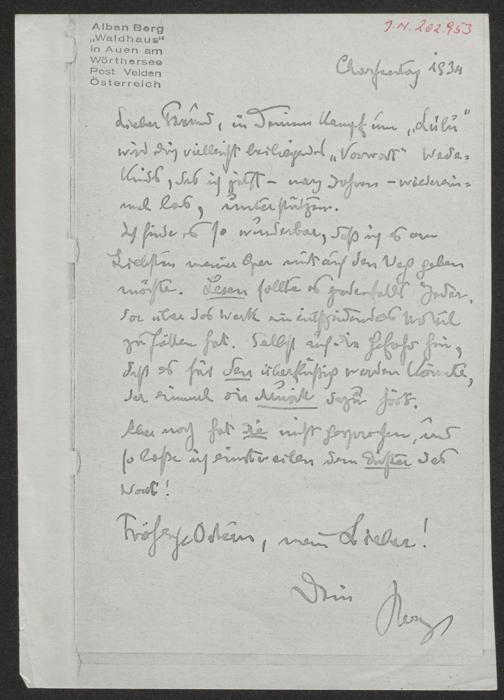 Alban Berg
„Waldhaus“
in Auen am
Wörthersee
Post Velden
Österreich
J.N. 202.953
Charfreitag 1934
Lieber Freund, in Deinem Kampf um „Lulu“
wird Dich vielleicht beiliegendes „Vorwort“ Wede-
kinds, das ich jetzt – nach Jahren – wiederein-
mal las, unterstützen.
Ich finde es so wunderbar, daß ich es am
Liebsten meiner Oper mit auf den Weg geben
möchte. Lesen sollte es jedenfalls Jeder,
der über das Werk ein entscheidendes Urteil
zu fällen hat. Selbst auf die Gefahr hin,
daß es für den überflüssig werden könnte,
der einmal die Musik dazu hört.
Aber noch hat die nicht gesprochen, und
so lasse ich einstweilen dem Dichter das
Wort!
Fröhliche Ostern, mein Lieber!
Dein Berg